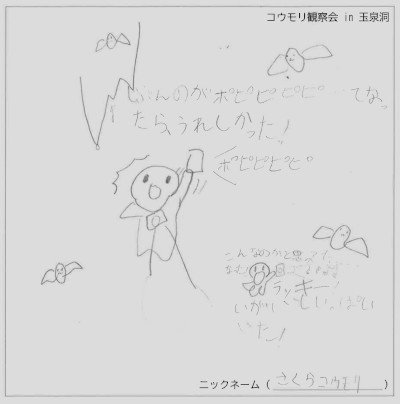 コウモリ観察会 in 玉泉洞
じぶんのがポピピピピ…てなっ
たら、うれしかった!
ポピピピピ
こんなのかと思ってた
ラッキー!
いがいといっぱい
いた!
ニックネーム (さくらコウモリ)